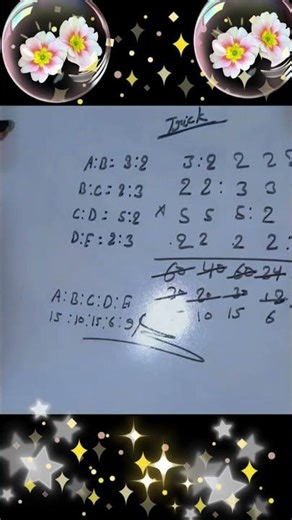 Trick
A:B = 3:2 3:2 2 2
B:C = 2:3 2 2:3 3
C:D = 5:2 × 5 5 5:2
D:E = 2:3 2 2 2 2:
60 40 60 24
30 20 30 12
A:B:C:D:E
15:10:15:6:9 10 15 6